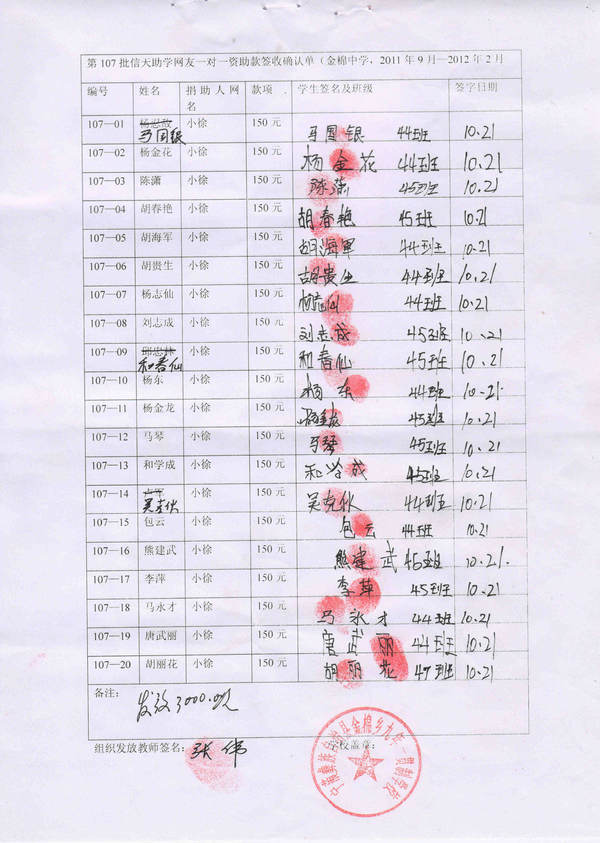 第 107 批信天助学网友一对一资助款签收确认单（金棉中学，2011 年 9 月—2012 年 2 月
编号 姓名 捐助人网名 款项 学生签名及班级 签字日期
107—01 马国银 小徐 150 元 马国银 44班 10.21
107—02 杨金花 小徐 150 元 杨金花 44班 10.21
107—03 陈潇 小徐 150 元 陈潇 45班 10.21
107—04 胡春艳 小徐 150 元 胡春艳 45班 10.21
107—05 胡海军 小徐 150 元 胡海军 44班 10.21
107—06 胡贵生 小徐 150 元 胡贵生 44班 10.21
107—07 杨志仙 小徐 150 元 杨志仙 44班 10.21
107—08 刘志成 小徐 150 元 刘志成 45班 10.21
107—09 邱忠林 和春仙 小徐 150 元 和春仙 45班 10.21
107—10 杨东 小徐 150 元 杨东 44班 10.21
107—11 杨金龙 小徐 150 元 杨金龙 45班 10.21
107—12 马琴 小徐 150 元 马琴 45班 10.21
107—13 和学成 小徐 150 元 和学成 45班 10.21
107—14 小徐 150 元 吴克伙 44班 10.21
107—15 包云 小徐 150 元 包云 44班 10.21
107—16 熊建武 小徐 150 元 熊建武 46班 10.21.
107—17 李萍 小徐 150 元 李萍 45班 10.21
107—18 马永才 小徐 150 元 马永才 44班 10.21
107—19 唐武丽 小徐 150 元 唐武丽 44班 10.21
107—20 胡丽花 小徐 150 元 胡丽花 47班 10.21
备注： 发放3000.00元
组织发放教师签名： 张伟 学校盖章：
宁蒗彝族自治县金棉乡九年一贯制学校